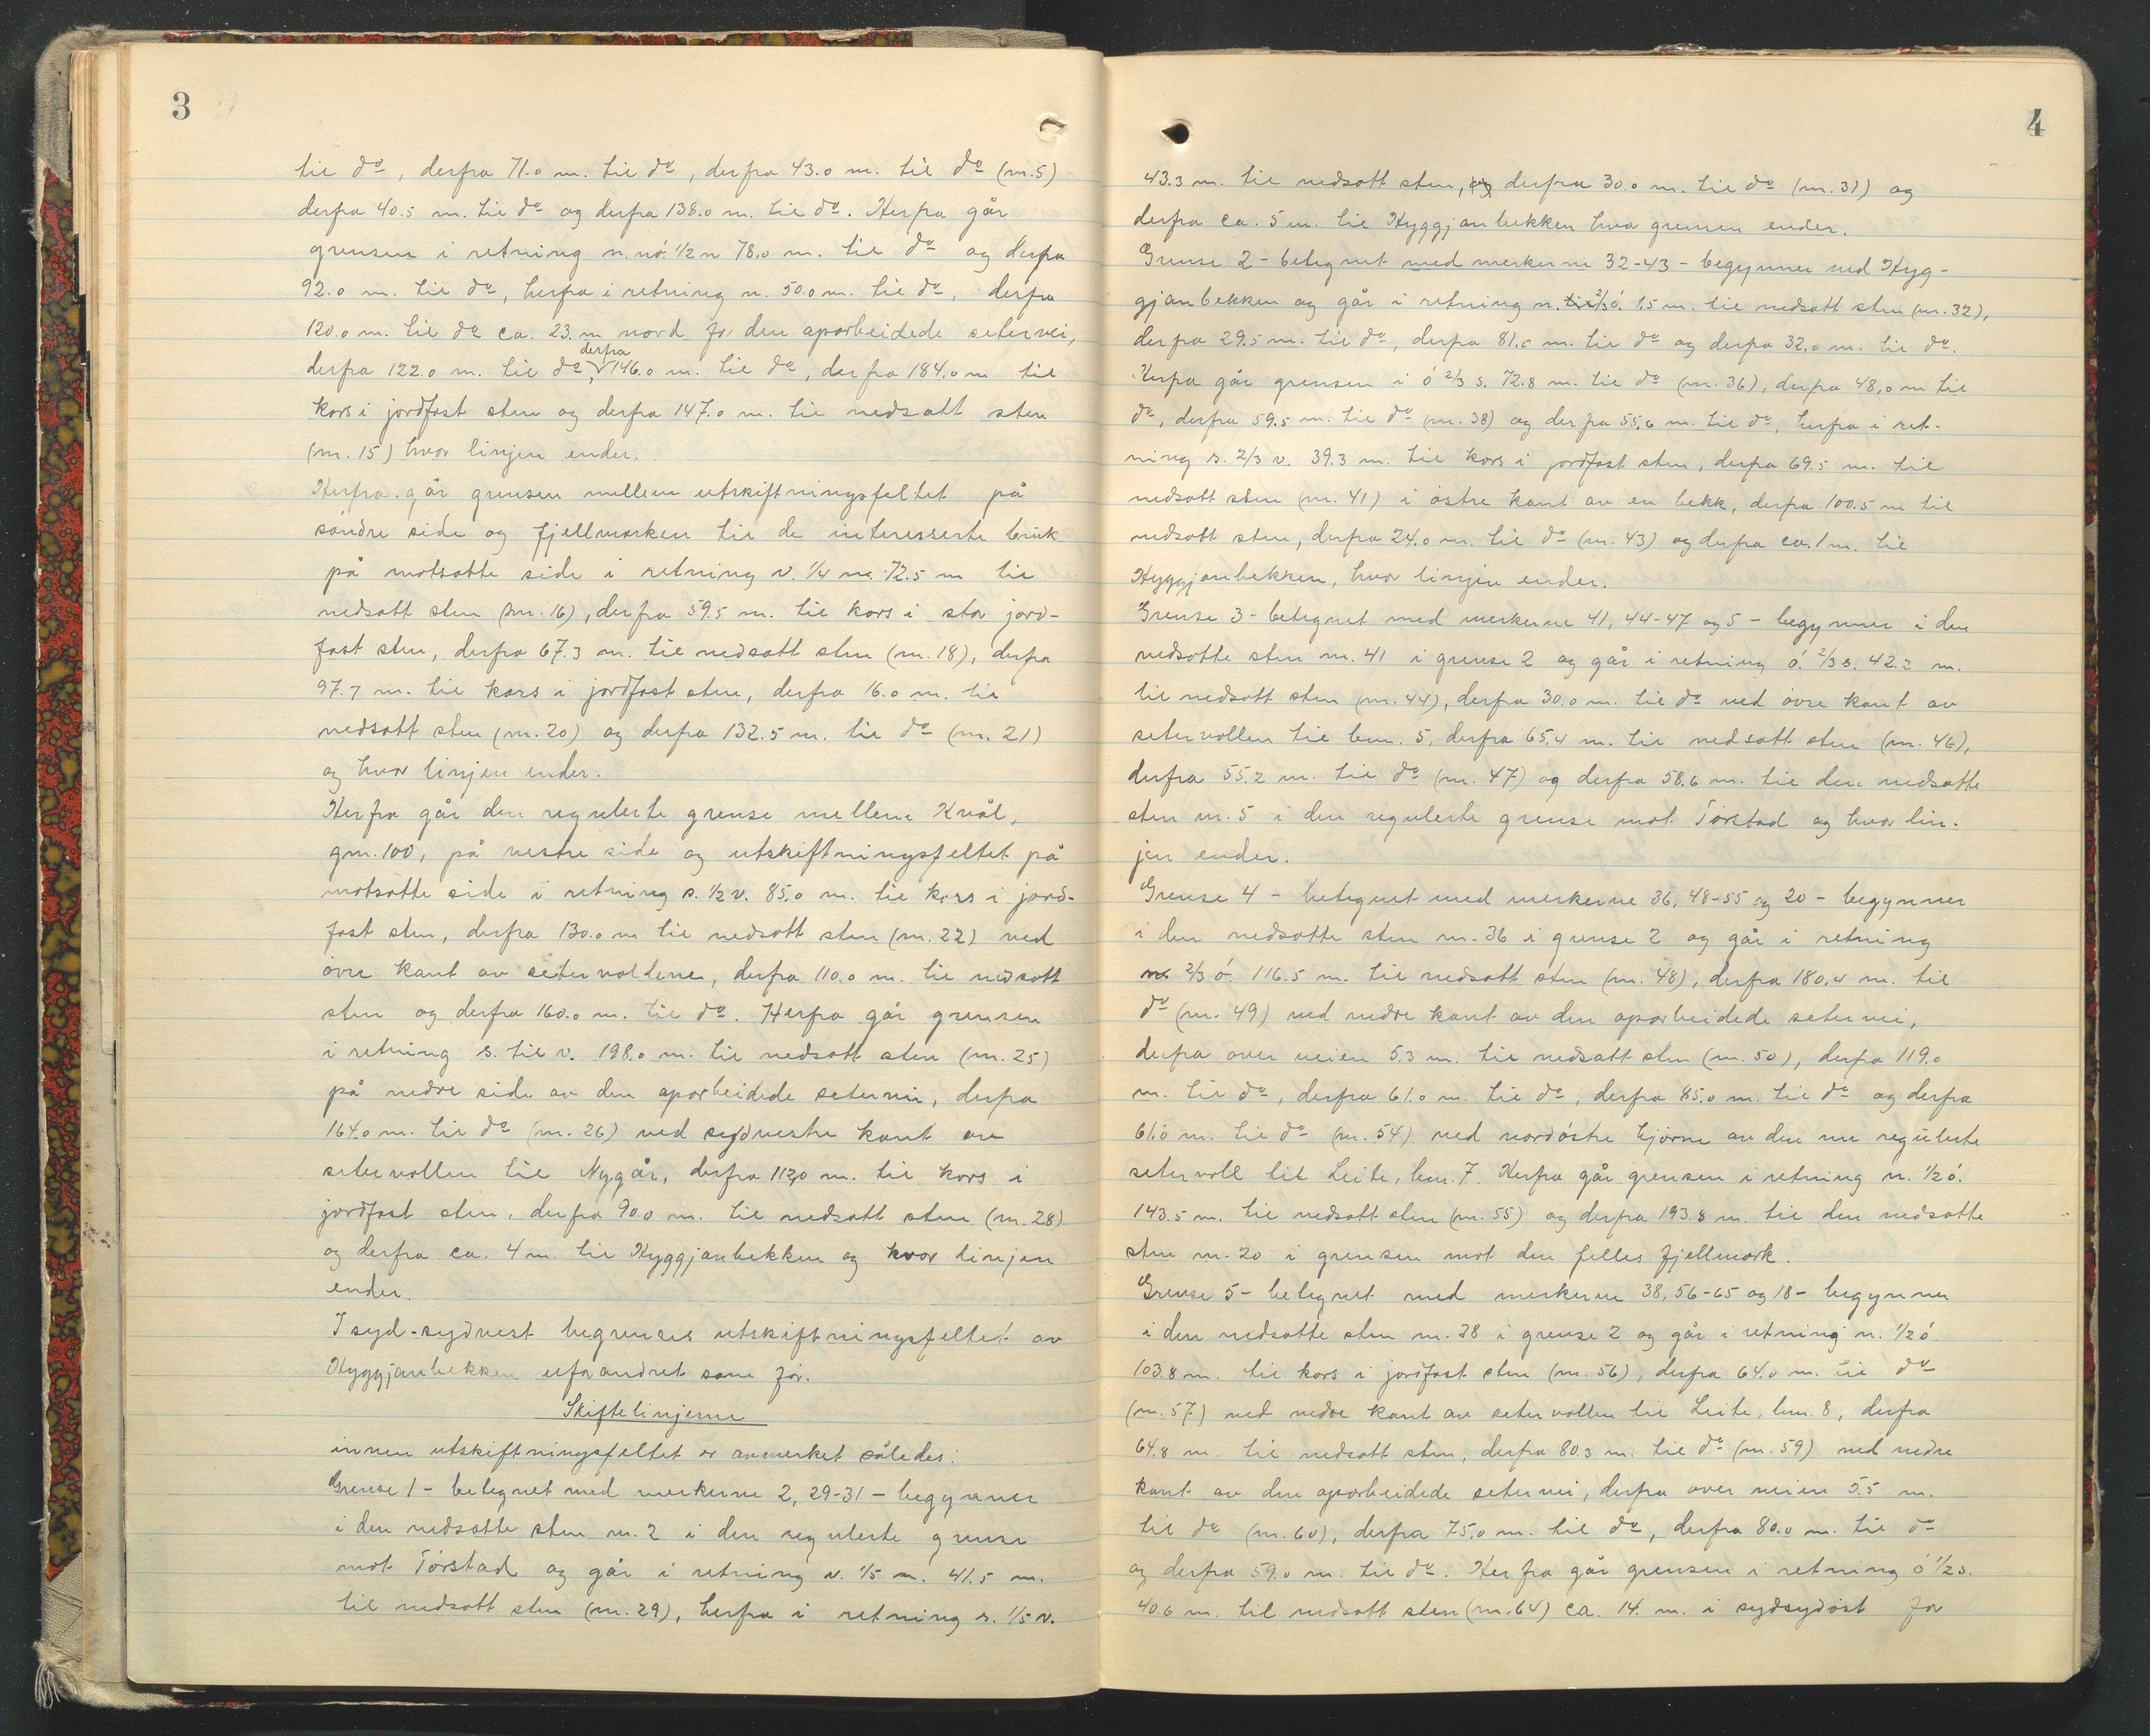 3
til dº, derfra 71.0 m. til dº, derfra 43.0 m. til dº (m. 5)
derfra 40.5 m. til dº og derfra 138.0 m. til dº. Herfra går
grensen i retning n.nó. 1/2 n 78.0 m. til dº og derfra
92.0 m. til dº, herfra i retning n. 50.0 m. til dº, derfra
120.0 m. til dº ca. 23. m nord for den oparbeidede setervei,
derfra 122.0 m. til dº, derfra 146.0 m. til dº, derfra 184.0 m til
kors i jordfast sten og derfra 147.0 m. til nedsatt sten
(m. 15) hvor linjen ender.
Herfra går grensen mellem utskiftningsfeltet på
søndre side og fjellmarken til de interesserte bruk
på motsatte side i retning v. 1/4 n. 72.5 m til
nedsatt sten (m. 16), derfra 59.5 m. til kors i stor jord-
fast sten, derfra 67.3 m. til nedsatt sten (m. 18), derfra
97.7 m. til kors i jordfast sten, derfra 16.0 m. til
nedsatt sten (m. 20) og derfra 132.5 m. til dº (m. 21)
og hvor linjen ender.
Herfra går den regulerte grense mellem Kvål,
gm. 100, på vestre side og utskiftningsfeltet på
motsatte side i retning s. 1/2 v. 85.0 m. til kors i jord-
fast sten, derfra 130.0 m til nedsatt sten (m. 22) ved
óvre kant av setervoldene, derfra 110.0 m. til nedsatt
sten og derfra 160.0 m. til dº. Herfra går grensen
i retning s. til v. 198.0 m. til nedsatt sten (m. 25)
på nedre side av den oparbeidede setervei, derfra
164.0 m. til dº (m. 26) ved sydvestre kant av
setervollen til Nygår, derfra 112.0 m. til kors i
jordfast sten, derfra 90.0 m. til nedsatt sten (m. 28)
og derfra ca. 4 m. til Hyggjanbekken og hvor linjen
ender.
I syd-sydvest begrenses utskiftningsfeltet av
Hyggjanbekken uforandret som fór.
Skiftelinjerne
innen utskiftningsfeltet er avmerket således:
Grense 1 - betegnet med merkerne 2, 29-31 - begynner
i den nedsatte sten m. 2 i den regulerte grense
mot Tórstad og går i retning v. 1/5 n. 41.5 m.
til nedsatt sten (m. 29), herfra i retning s. 1/5 v.
4
43.3 m. til nedsatt sten, og derfra 30.0 m. til dº (m. 31) og
derfra ca. 5 m. til Hyggjanbekken hvor grensen ender.
Grense 2 - betegnet med merkerne 32-43 - begynner ved Hyg-
gjanbekken og går i retning n. til 2/3 ó. 1,5 m. til nedsatt sten (m. 32),
derfra 29.5 m. til dº, derfra 81.0 m. til dº og derfra 32.0 m. til dº.
Herfra går grensen i ó 2/3 s. 72.8 m. til dº (m. 36), derfra 48,0 m til
dº, derfra 59.5 m. til dº (m. 38) og derfra 55,6 m. til dº, herfra i ret-
ning s. 2/3 v. 39.3 m. til kors i jordfast sten, derfra 69.5 m. til
nedsatt sten (m. 41) i óstre kant av en bekk, derfra 100.5 m til
nedsatt sten, derfra 24.0 m. til dº (m. 43) og derfra ca. 1 m. til
Hyggjanbekken, hvor linjen ender.
Grense 3 - betegnet med merkerne 41, 44-47 og 5 - begynner i den
nedsatte sten m. 41 i grense 2 og går i retning ó. 2/3 s. 42.2 m.
til nedsatt sten (m. 44), derfra 30.0 m. til dº ved óvre kant av
setervollen til bm. 5, derfra 65.4 m. til nedsatt sten (m. 46),
derfra 55.2 m. til dº (m. 47) og derfra 58.6 m. til den nedsatte
sten m. 5 i den regulerte grense mot Tórstad og hvor lin-
jen ender.
Grense 4 - betegnet med merkerne 36, 48-55 og 20 - begynner
i den nedsatte sten m. 36 i grense 2 og går i retning
n. 2/3 ó. 116.5 m. til nedsatt sten (m. 48), derfra 180,4 m. til
dº (m. 49) ved nedre kant av den oparbeidede setervei,
derfra over veien 5.3 m. til nedsatt sten (m. 50), derfra 119.0
m. til dº, derfra 61.0 m. til dº, derfra 85.0 m. til dº og derfra
61.0 m. til dº (m. 54) ved nordóstre hjórne av den nu regulerte
setervoll til Leite, bm. 7. Herfra går grensen i retning n. 1/2 ó.
143.5 m. til nedsatt sten (m. 55) og derfra 193.8 m. til den nedsatte
sten m. 20 i grensen mot den felles fjellmark.
Grense 5 - betegnet med merkerne 38, 56-65 og 18 - begynner
i den nedsatte sten m. 38 i grense 2 og går i retning n. 1/2 ó.
103.8 m. til kors i jordfast sten (m. 56), derfra 64.0 m. til dº
(m. 57) ved nedre kant av setervollen til Leite, bm. 8, derfra
64.8 m. til nedsatt sten, derfra 80.3 m. til dº (m. 59) ved nedre
kant av den oparbeidede setervei, derfra over veien 5.5 m.
til dº (m. 60), derfra 75.0 m. til dº, derfra 80.0 m. til dº
og derfra 59.0 m. til dº. Herfra går grensen i retning ó 1/2 s.
40.6 m. til nedsatt sten (m. 64) ca. 14. m. i sydsydóst for